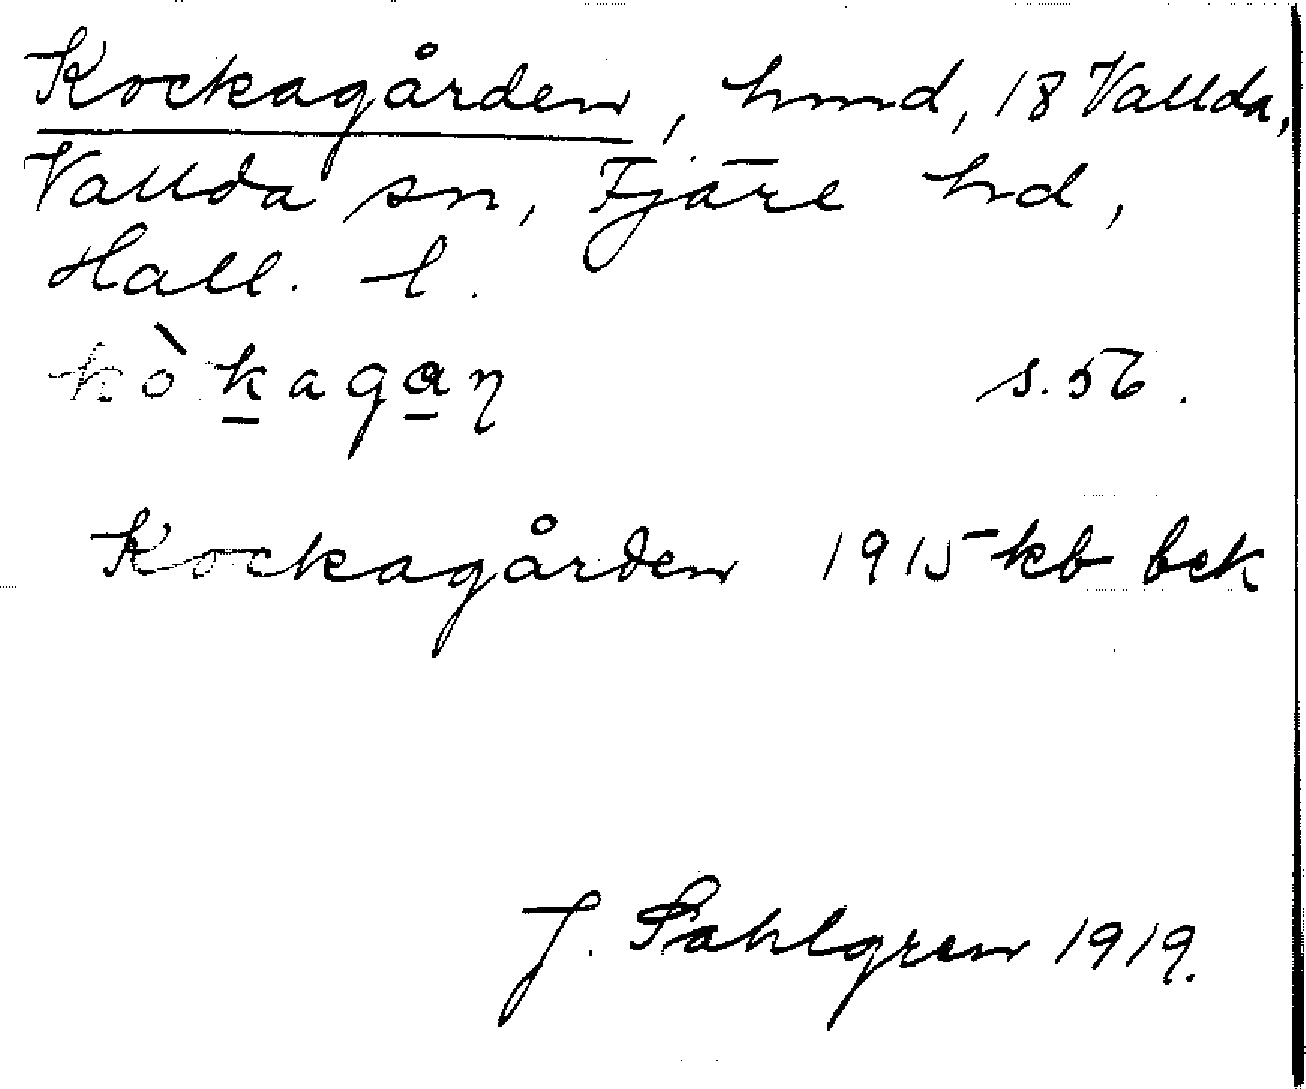 Kockagården, hmd, 18 Vallda,
Vallda sn, Fjäre hd,
Hall. l.
kòkagaη s. 56.
Kockagården 1915 kb bck
J. Sahlgren 1919.